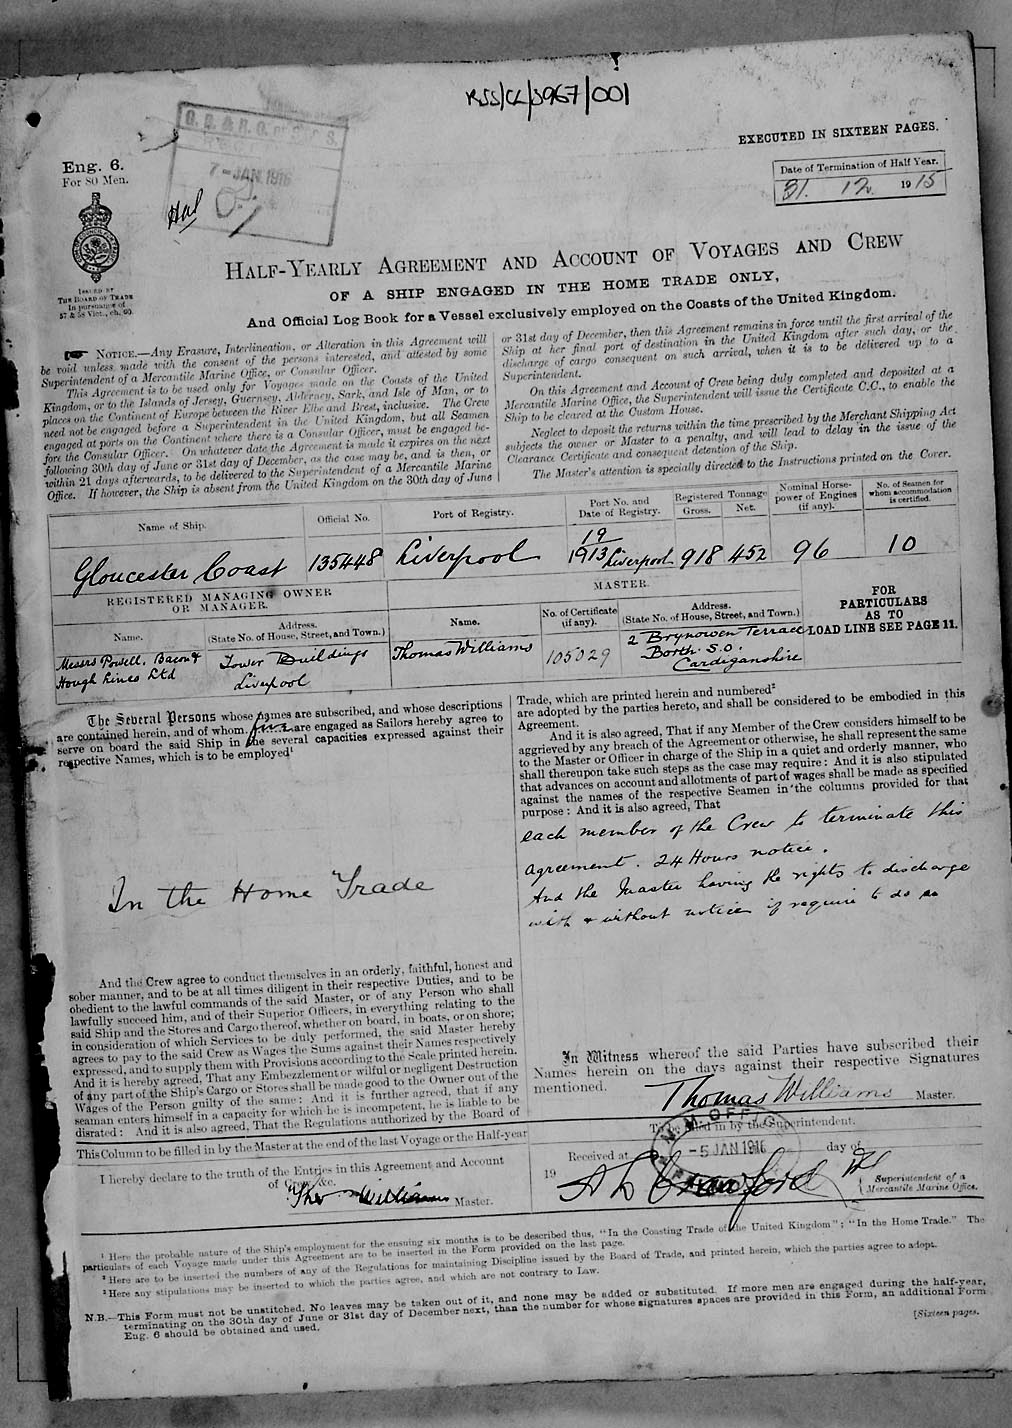 RSS/CL/1967/001
EXECUTED IN SIXTEEN PAGES.
Eng. 6.
For 80 Men.
7-JAN 1916
Date of Termination of Half Year.
31. 12. 1915
ISSUED BY
THE BOARD OF TRADE
In pursuance of
57 & 58 Vict., ch. 60.
HALF-YEARLY AGREEMENT AND ACCOUNT OF VOYAGES AND CREW
OF A SHIP ENGAGED IN THE HOME TRADE ONLY,
And Official Log Book for a Vessel exclusively employed on the Coasts of the United Kingdom.
NOTICE.—Any Erasure, Interlineation, or Alteration in this Agreement will
be void unless made with the consent of the persons interested, and attested by some
Superintendent of a Mercantile Marine Office, or Consular Officer.
This Agreement is to be used only for Voyages made on the Coasts of the United
Kingdom, or to the Islands of Jersey, Guernsey, Alderney, Sark, and Isle of Man, or to
places on the Continent of Europe between the River Elbe and Brest, inclusive. The Crew
need not be engaged before a Superintendent in the United Kingdom, but all Seamen
engaged at ports on the Continent where there is a Consular Officer, must be engaged be-
fore the Consular Officer. On whatever date the Agreement is made it expires on the next
following 30th day of June or 31st day of December, as the case may be, and is then, or
within 21 days afterwards, to be delivered to the Superintendent of a Mercantile Marine
Office. If however, the Ship is absent from the United Kingdom on the 30th day of June
or 31st day of December, then this Agreement remains in force until the first arrival of the
Ship at her final port of destination in the United Kingdom after such day, or the
discharge of cargo consequent on such arrival, when it is to be delivered up to a
Superintendent.
On this Agreement and Account of Crew being duly completed and deposited at a
Mercantile Marine Office, the Superintendent will issue the Certificate C.C., to enable the
Ship to be cleared at the Custom House.
Neglect to deposit the returns within the time prescribed by the Merchant Shipping Act
subjects the owner or Master to a penalty, and will lead to delay in the issue of the
Clearance Certificate and consequent detention of the Ship.
The Master's attention is specially directed to the Instructions printed on the Cover.
Name of Ship. Official No. Port of Registry. Port No. and Date of Registry. Registered Tonnage Gross. Net. Nominal Horse-power of Engines (if any). No. of Seamen for whom accommodation is certified.
Gloucester Coast 135448 Liverpool 19/1913 Liverpool 918 452 96 10
REGISTERED MANAGING OWNER
OR MANAGER.
MASTER.
Name. Address. (State No. of House, Street, and Town.)
Name. No. of Certificate (if any). Address. (State No. of House, Street, and Town.)
FOR
PARTICULARS
AS TO
LOAD LINE SEE PAGE 11.
Messrs Powell, Bacon & Hough Lines Ltd
Tower Buildings Liverpool
Thomas Williams
105029
2 Brynowen Terrace
Borth. S.O.
Cardiganshire
The Several Persons whose names are subscribed, and whose descriptions
are contained herein, and of whom five are engaged as Sailors hereby agree to
serve on board the said Ship in the several capacities expressed against their
respective Names, which is to be employed¹
In the Home Trade
And the Crew agree to conduct themselves in an orderly, faithful, honest and
sober manner, and to be at all times diligent in their respective Duties, and to be
obedient to the lawful commands of the said Master, or of any Person who shall
lawfully succeed him, and of their Superior Officers, in everything relating to the
said Ship and the Stores and Cargo thereof, whether on board, in boats, or on shore;
in consideration of which Services to be duly performed, the said Master hereby
agrees to pay to the said Crew as Wages the Sums against their Names respectively
expressed, and to supply them with Provisions according to the Scale printed herein.
And it is hereby agreed, That any Embezzlement or wilful or negligent Destruction
of any part of the Ship's Cargo or Stores shall be made good to the Owner out of the
Wages of the Person guilty of the same: And it is further agreed, that if any
seaman enters himself in a capacity for which he is incompetent, he is liable to be
disrated: And it is also agreed, That the Regulations authorized by the Board of
Trade, which are printed herein and numbered²
are adopted by the parties hereto, and shall be considered to be embodied in this
Agreement.
And it is also agreed, That if any Member of the Crew considers himself to be
aggrieved by any breach of the Agreement or otherwise, he shall represent the same
to the Master or Officer in charge of the Ship in a quiet and orderly manner, who
shall thereupon take such steps as the case may require: And it is also stipulated
that advances on account and allotments of part of wages shall be made as specified
against the names of the respective Seamen in the columns provided for that
purpose: And it is also agreed, That
each member of the Crew to terminate this
agreement. 24 Hours notice.
And the Master having the rights to discharge
with & without notice if require to do so
In Witness whereof the said Parties have subscribed their
Names herein on the days against their respective Signatures
mentioned.
Thomas Williams Master.
This Column to be filled in by the Master at the end of the last Voyage or the Half-year
I hereby declare to the truth of the Entries in this Agreement and Account
of Crew, &c.
Thos Williams Master.
To be filled in by the Superintendent.
M.M. OFFICE
-5 JAN 1916
Received at day of
19
Crawford
Superintendent of a
Mercantile Marine Office.
¹ Here the probable nature of the Ship's employment for the ensuing six months is to be described thus, "In the Coasting Trade of the United Kingdom"; "In the Home Trade." The
particulars of each Voyage made under this Agreement are to be inserted in the Form provided on the last page.
² Here are to be inserted the numbers of any of the Regulations for maintaining Discipline issued by the Board of Trade, and printed herein, which the parties agree to adopt.
³ Here any stipulations may be inserted to which the parties agree, and which are not contrary to Law.
N.B.—This Form must not be unstitched. No leaves may be taken out of it, and none may be added or substituted. If more men are engaged during the half-year,
terminating on the 30th day of June or 31st day of December next, than the number for whose signatures spaces are provided in this Form, an additional Form
Eng. 6 should be obtained and used.
[Sixteen pages.